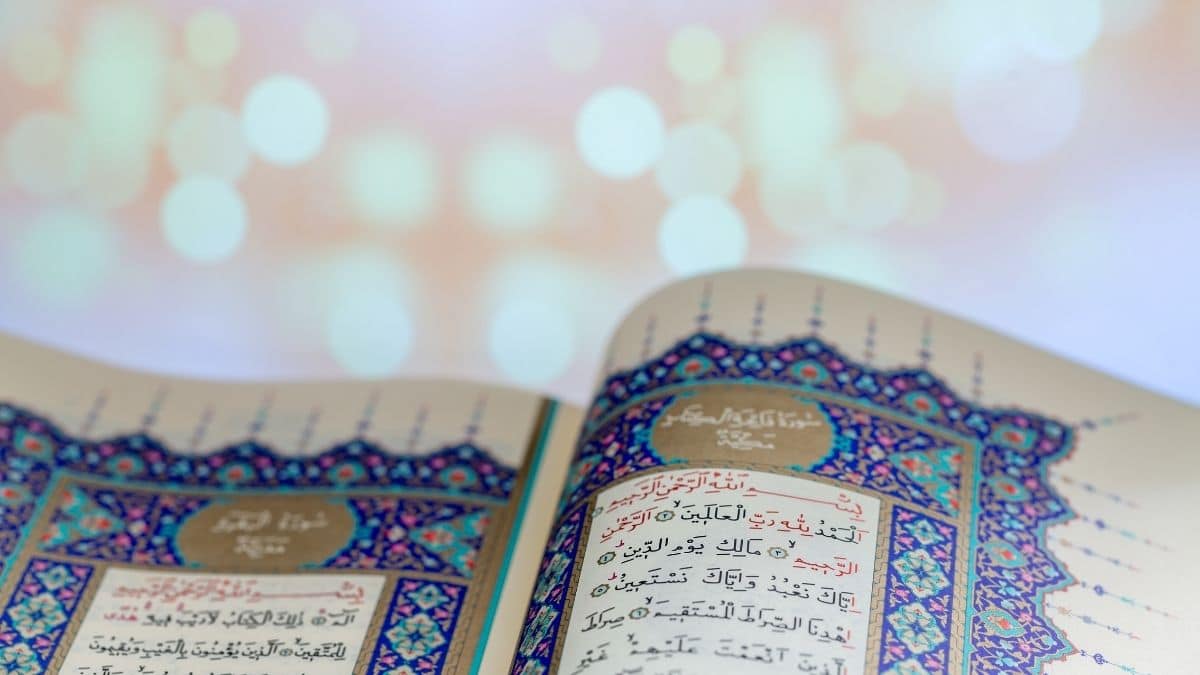 سُورَةُ فَاتِحَةِ الْكِتَابِ
مَكِّيَّةٌ
بِسْمِ اللّٰهِ الرَّحْمٰنِ الرَّحِيمِ ١
اَلْحَمْدُ لِلّٰهِ رَبِّ الْعَالَمِينَۙ ٢ اَلرَّحْمٰنِ
الرَّحِيمِۙ ٣ مَالِكِ يَوْمِ الدِّينِۜ ٤
اِيَّاكَ نَعْبُدُ وَاِيَّاكَ نَسْتَعِينُۜ ٥
اِهْدِنَا الصِّرَاطَ الْمُسْتَقِيمَۙ ٦ صِرَاطَ
الَّذِينَ اَنْعَمْتَ عَلَيْهِمْۙ غَيْرِ
سُورَةُ الْبَقَرَةِ
مَدَنِيَّةٌ
بِسْمِ اللّٰهِ الرَّحْمٰنِ الرَّحِيمِ
الٓمٓ ١ ذٰلِكَ الْكِتَابُ لَا رَيْبَ فِيهِ هُدًى
لِلْمُتَّقِينَۙ ٢ اَلَّذِينَ يُؤْمِنُونَ بِالْغَيْبِ وَيُقِيمُونَ